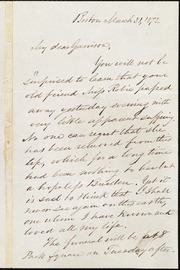 Boston March 31, 1872
My dear Garrison,
You will not be
surprised to learn that your
old friend Miss Robie passed
away yesterday evening with
very little apparent suffering.
No one can regret that she
has been released from the
body, which for a long time
had been nothing to her but
a hopeless burden. Yet it
is sad to think that I shall
never see again on this earth,
one whom I have known and
loved all my life.
The funeral will be
Square on Tuesday after-